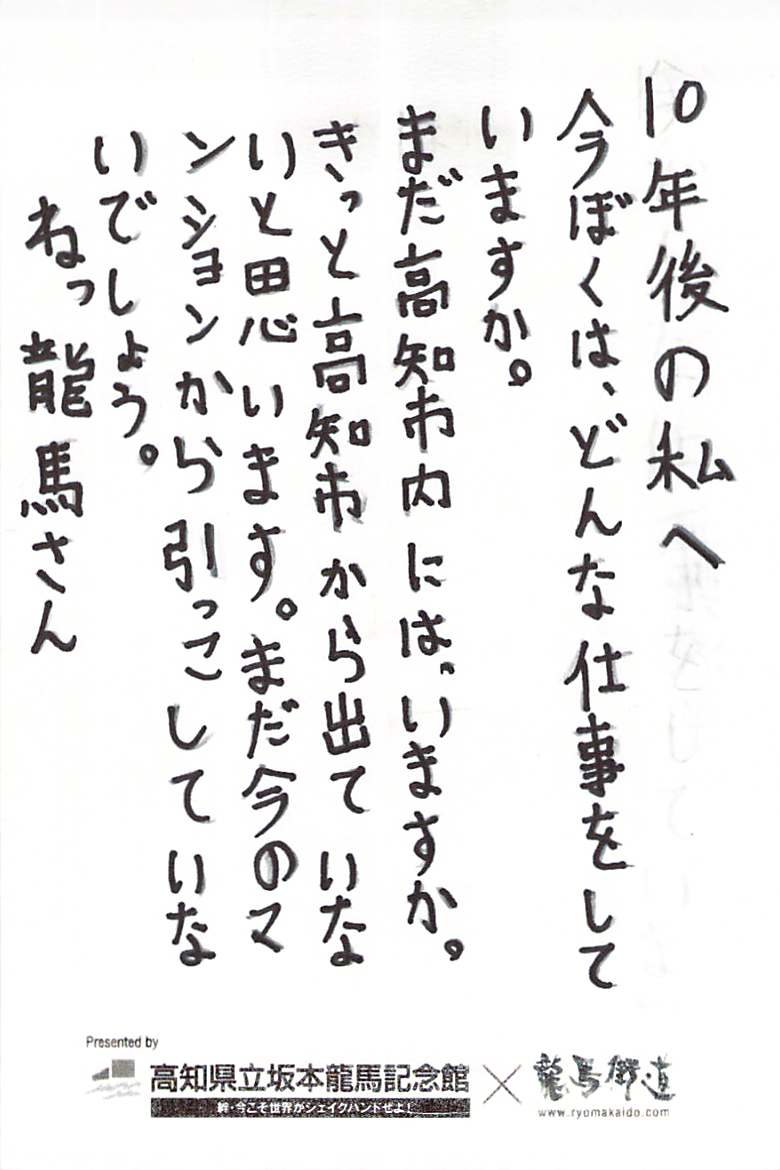 10年後の私へ
今ぼくは、どんな仕事をして
いますか。
まだ高知市内には、いますか。
きっと高知市から出ていな
いと思います。まだ今のマ
ンションから引っこしていな
いでしょう。
ねっ龍馬さん
Presented by
高知県立坂本龍馬記念館×龍馬街道
絆・今こそ世界がシェイクハンドせよ！
www.ryomakaido.com